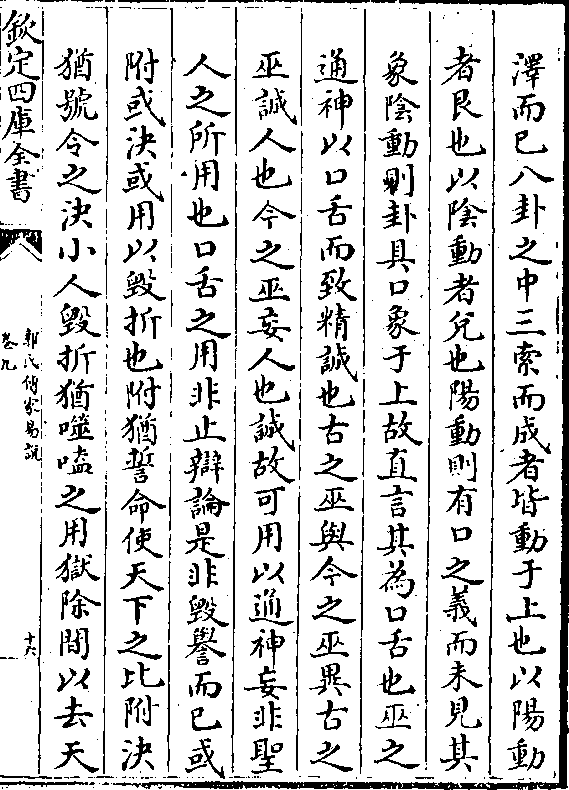 澤而已八卦之中三索而成者皆動于上也以陽動
者艮也以陰動者兌也陽動則有口之義而未見其
象陰動則卦具口象于上故直言其為口舌也巫之
通神以口舌而致精誠也古之巫與今之巫異古之
巫誠人也今之巫妄人也誠故可用以通神妄非聖
人之所用也口舌之用非止辯論是非毀譽而已或
附或決或用以毀折也附猶誓命使天下之比附決
猶號令之決小人毀折猶噬嗑之用獄除間以去天
欽定四庫全書
郭氏傳家易說
卷九
十六